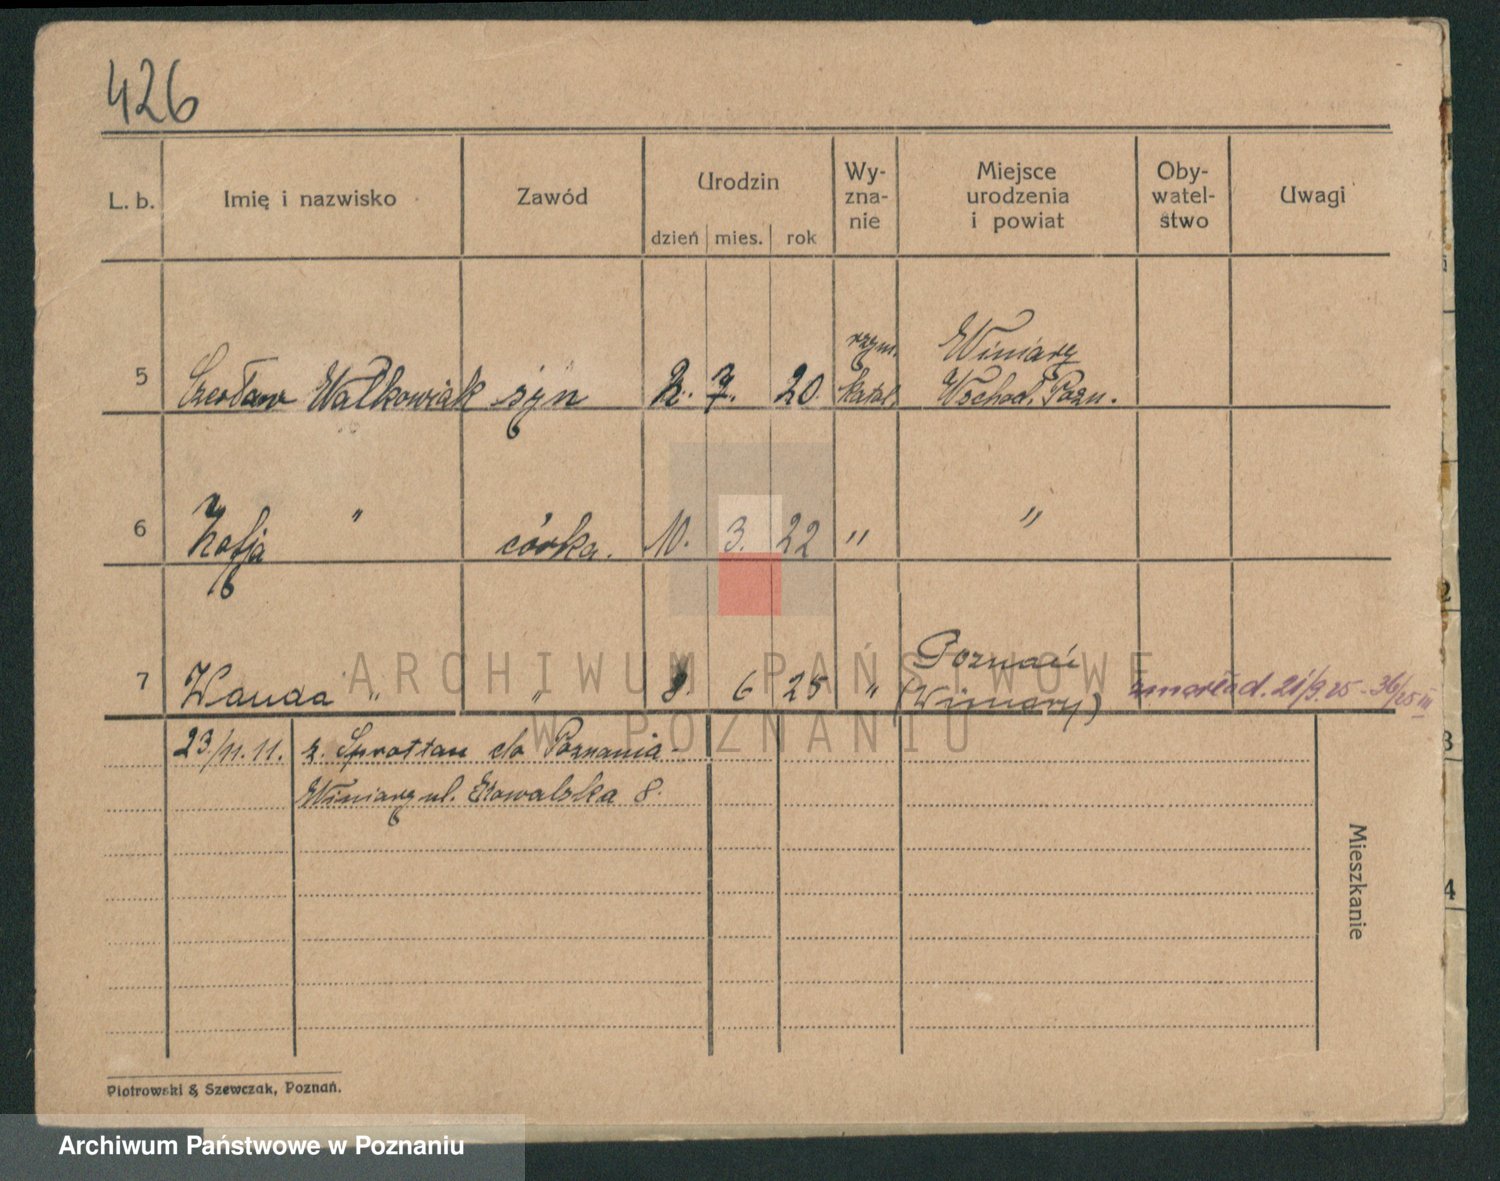 426
L. b.
Imię i nazwisko
Zawód
Urodzin
dzień mies. rok
Wy-
zna-
nie
Miejsce
urodzenia
i powiat
Oby-
watel-
stwo
Uwagi
5 Czesław Walkowiak syn 2. 7. 20. rzym. katol. Winiary
Wschod. Pozn.
6 Zofja " córka. 10. 3. 22 " "
7 Wanda " " 8. 6 25 " Poznań
(Winiary) zmarła d. 21/9. 25 - 36/25 III
23./11. 11. z. Sprottau do Poznania -
Winiary ul. Kowalska 8.
Mieszkanie
Piotrowski & Szewczak, Poznań.
ARCHIWUM PAŃSTWOWE
W POZNANIU
Archiwum Państwowe w Poznaniu
2
3
4